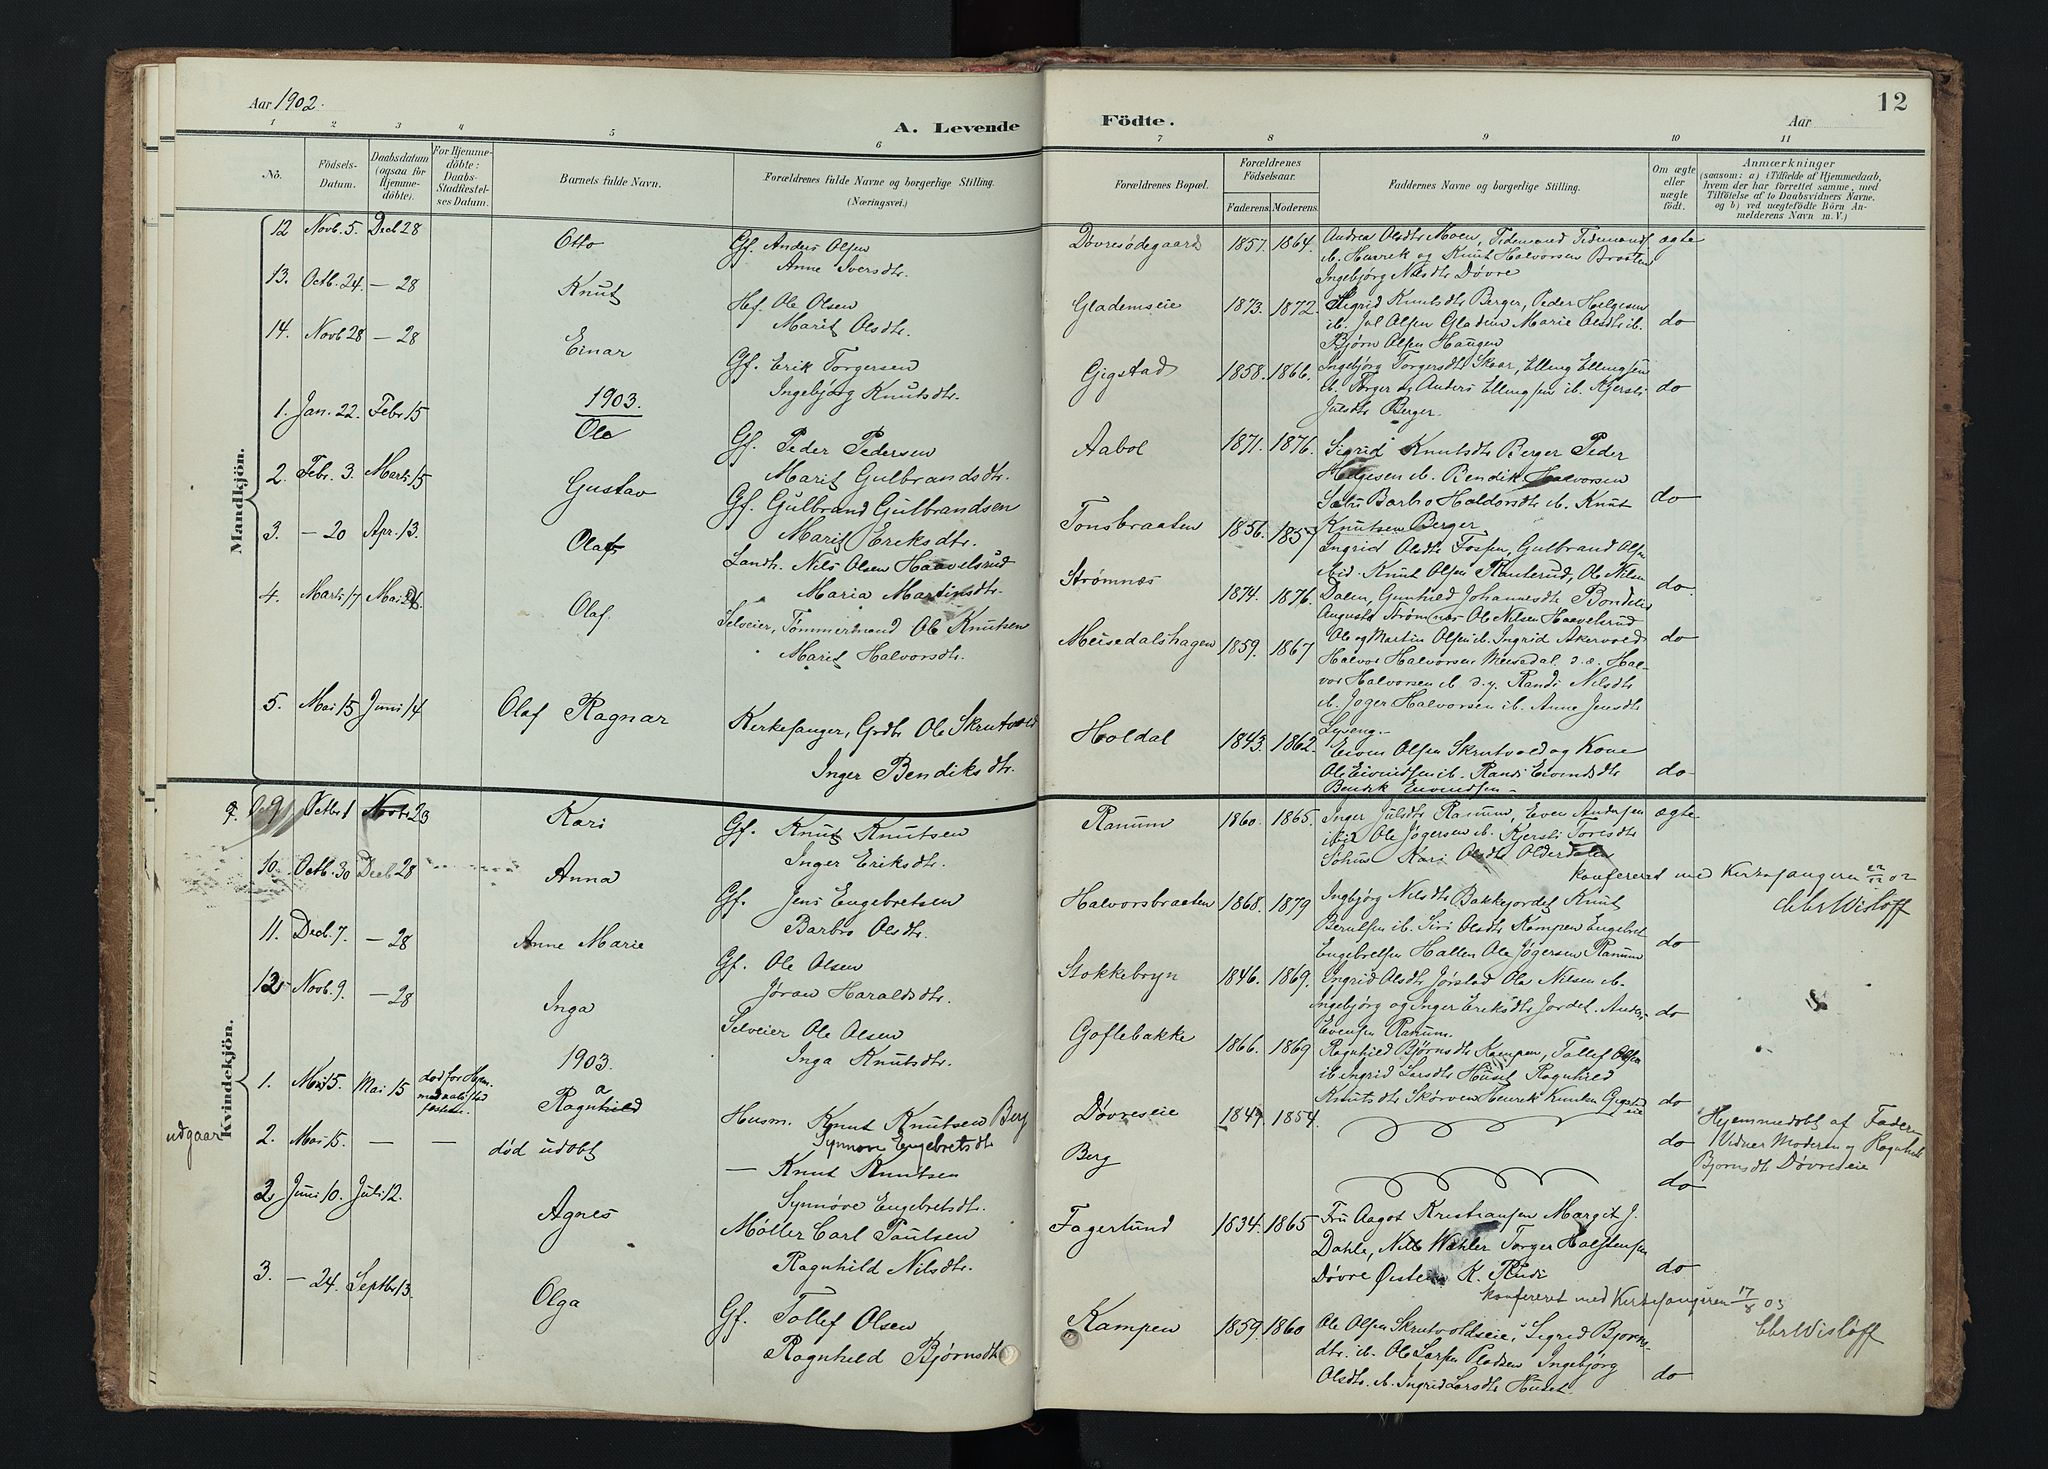 Aar 1902.
A. Levende
Födte.
Aar
12
1 2 3 4 5 6
7 8 9 10 11
No.
Födsels-
Datum.
Daabsdatum
(ogsaa for
Hjemme-
döbte).
For Hjemme-
döbte:
Daabs-
Stadfæstel-
ses Datum.
Barnets fulde Navn.
Forældrenes fulde Navne og borgerlige Stilling.
(Næringsvei.)
Forældrenes Bopæl.
Forældrenes
Födselsaar.
Faderens. Moderens.
Faddernes Navne og borgerlige Stilling.
Om ægte
eller
uægte
födt.
Anmærkninger
(saasom: a) i Tilfælde af Hjemmedaab,
hvem der har forrettet samme, med
Tilföielse af to Daabsvidners Navne,
og b) ved uægtefödte Börn An-
melderens Navn m. V.)
Mandkjön.
12 Novb. 5. Decb 28 Otto Gf. Anders Olsen
Anne Iversdtr.
Dövresödegaard 1857. 1864. Andrea Olsdtr Moen, Tidemand Tidemands. ægte
ib. Henrik og Knut Halvorsen Braaten
Ingebjörg Nilsdtr Dövre
13. Octb. 24. — 28 Knut Hf. Ole Olsen
Marit Olsdtr.
Glademseie 1873. 1872. Sigrid Knutsdtr Berger, Peder Helgesen
ib. Jul Olsen Gladem Marie Olsdtr ib. do
Bjørn Olsen Haugen
14. Novb 28 — 28 Einar Gf. Erik Torgersen
Ingebjørg Knutsdtr.
Gigstad 1858. 1866. Ingebjörg Torgersdtr Skaar, Elling Ellingsen
ib. Torger og Anders Ellingsen ib. Kjersti do
Julsdtr Berger.
1903.
1. Jan. 22. Febr. 15 Ole Gf. Peder Pedersen
Marit Gulbrandsdtr.
Aabol 1871. 1876. Sigrid Knutsdtr Berger Peder
Helgesen ib. Bendik Halvorsen
Barbro Haldorsdtr ib. Knut do
Knutsen Berger
2. Febr. 3. Marts 15 Gustav Gf. Gulbrand Gulbrandsen
Marit Eriksdtr.
Tonsbraaten 1856. 1857 Ingrid Olsdtr Fossen, Gulbrand Olsen
Knut Olsen Ole Nilsen do.
3. — 20 Apr. 13. Olaf Landh. Nils Olsen Haavelsrud
Maria Martinsdtr.
Strömnæs 1874. 1876. Dalen, Gunhild Johannesdtr
Augusta Strömnæs Ole Nilsen Haavelsrud
4. Marts 17 Mai 21. Olaf. Selveier, Tömmermand Ole Knutsen
Marit Halvorsdtr.
Meisedalshagen 1859. 1867 Ole og Martin Olsen ib. Ingrid Akervold do
Halvor Halvorsen Meisedal d. æ. Hal-
vor Halvorsen ib d. y. Randi Nilsdtr
ib. Joger Halvorsen ib. Anne Jensdtr
5. Mai 15 Juni 14 Olaf Ragnar Kirkesanger, Grdbr Ole Skrutvold
Inger Bendiksdtr.
Holdal 1843. 1862. Eivin Olsen Skrutvold og Kone
Ole Eivindsen ib. Randi Eivindsdtr do
Bendik Eivindsen —
Kvindekjön.
9. Octbr 1 Novbr 23 Kari Gf. Knut Knutsen
Inger Eriksdtr.
Ranum 1860. 1865. Inger Julsdtr Ranum, Even Andersen ægte
ib. Ole Jogersen ib. Kjersti Toresdtr
Kari Olsdtr Olderdalen
konfereret med Kirkesangeren 22/12 02
Chr Wisløff
10. Octb. 30 Decb 28 Anna Gf. Jens Engebretsen
Barbro Olsdtr.
Halvorsbraaten 1868. 1879 Ingbjörg Nilsdtr Bakkejordet Knut
ib. Siri Olsdtr Kampen Engebret
Engebretsen Hallen Ole Jögersen Ranum do
11. Decb. 7. — 28 Anne Marie Gf. Ole Olsen
Jöran Haraldsdtr.
Stokkebryn 1846. 1869. Ingrid Olsdtr Jørstad Ole Nilsen ib.
Ingebjørg og Inger Eriksdtr Jordet. Anders do
Evensen Ranum.
12 Novb. 9. — 28 Inga Selveier Ole Olsen
Inga Knutsdtr.
Goflebakke 1866. 1869 Ragnhild Bjørnsdtr Kampen, Tollef Olsen
ib Ingrid Larsdtr Huset Ragnhild
Knutsdtr Skørven Henrik Knutsen Gigstadeie do
1903.
1. Mai 5. Mai 15 død for Hjem-
medaabs stad
fæstelse.
Ragnhild Husm. Knut Knutsen Berg
Synnöve Engebretsdtr
Dövreseie 1849. 1854. do
Hjemmedöbt af Faderen
Vidner Moderen og Ragnhild
Bjornsdtr Dövreseie
udgaar 2. Mai 5. — — død udöbt — Knut Knutsen
Synnöve Engebretsdtr.
Berg do
2 Juni 10. Juli 12. Agnes Møller Carl Paulsen
Ragnhild Nilsdtr.
Fagerlund 1834. 1865 Fru Aagot Kristiansen Margit J.
Dahle, Nils Wahler Torger Halstensen
Dövre Østen K. Rudi do
konfereret med Kirkesangeren 17/8 03
Chr Wisløff
3. — 24. Septbr 13. Olga Gf. Tollef Olsen
Ragnhild Bjørnsdtr
Kampen 1859. 1860 Ole Olsen Skrutvoldseie, Sigrid Bjorns-
dtr. ib. Ole Larsen Pladsen Ingebjörg
Olsdtr. ib. Ingrid Larsdtr Huset. do